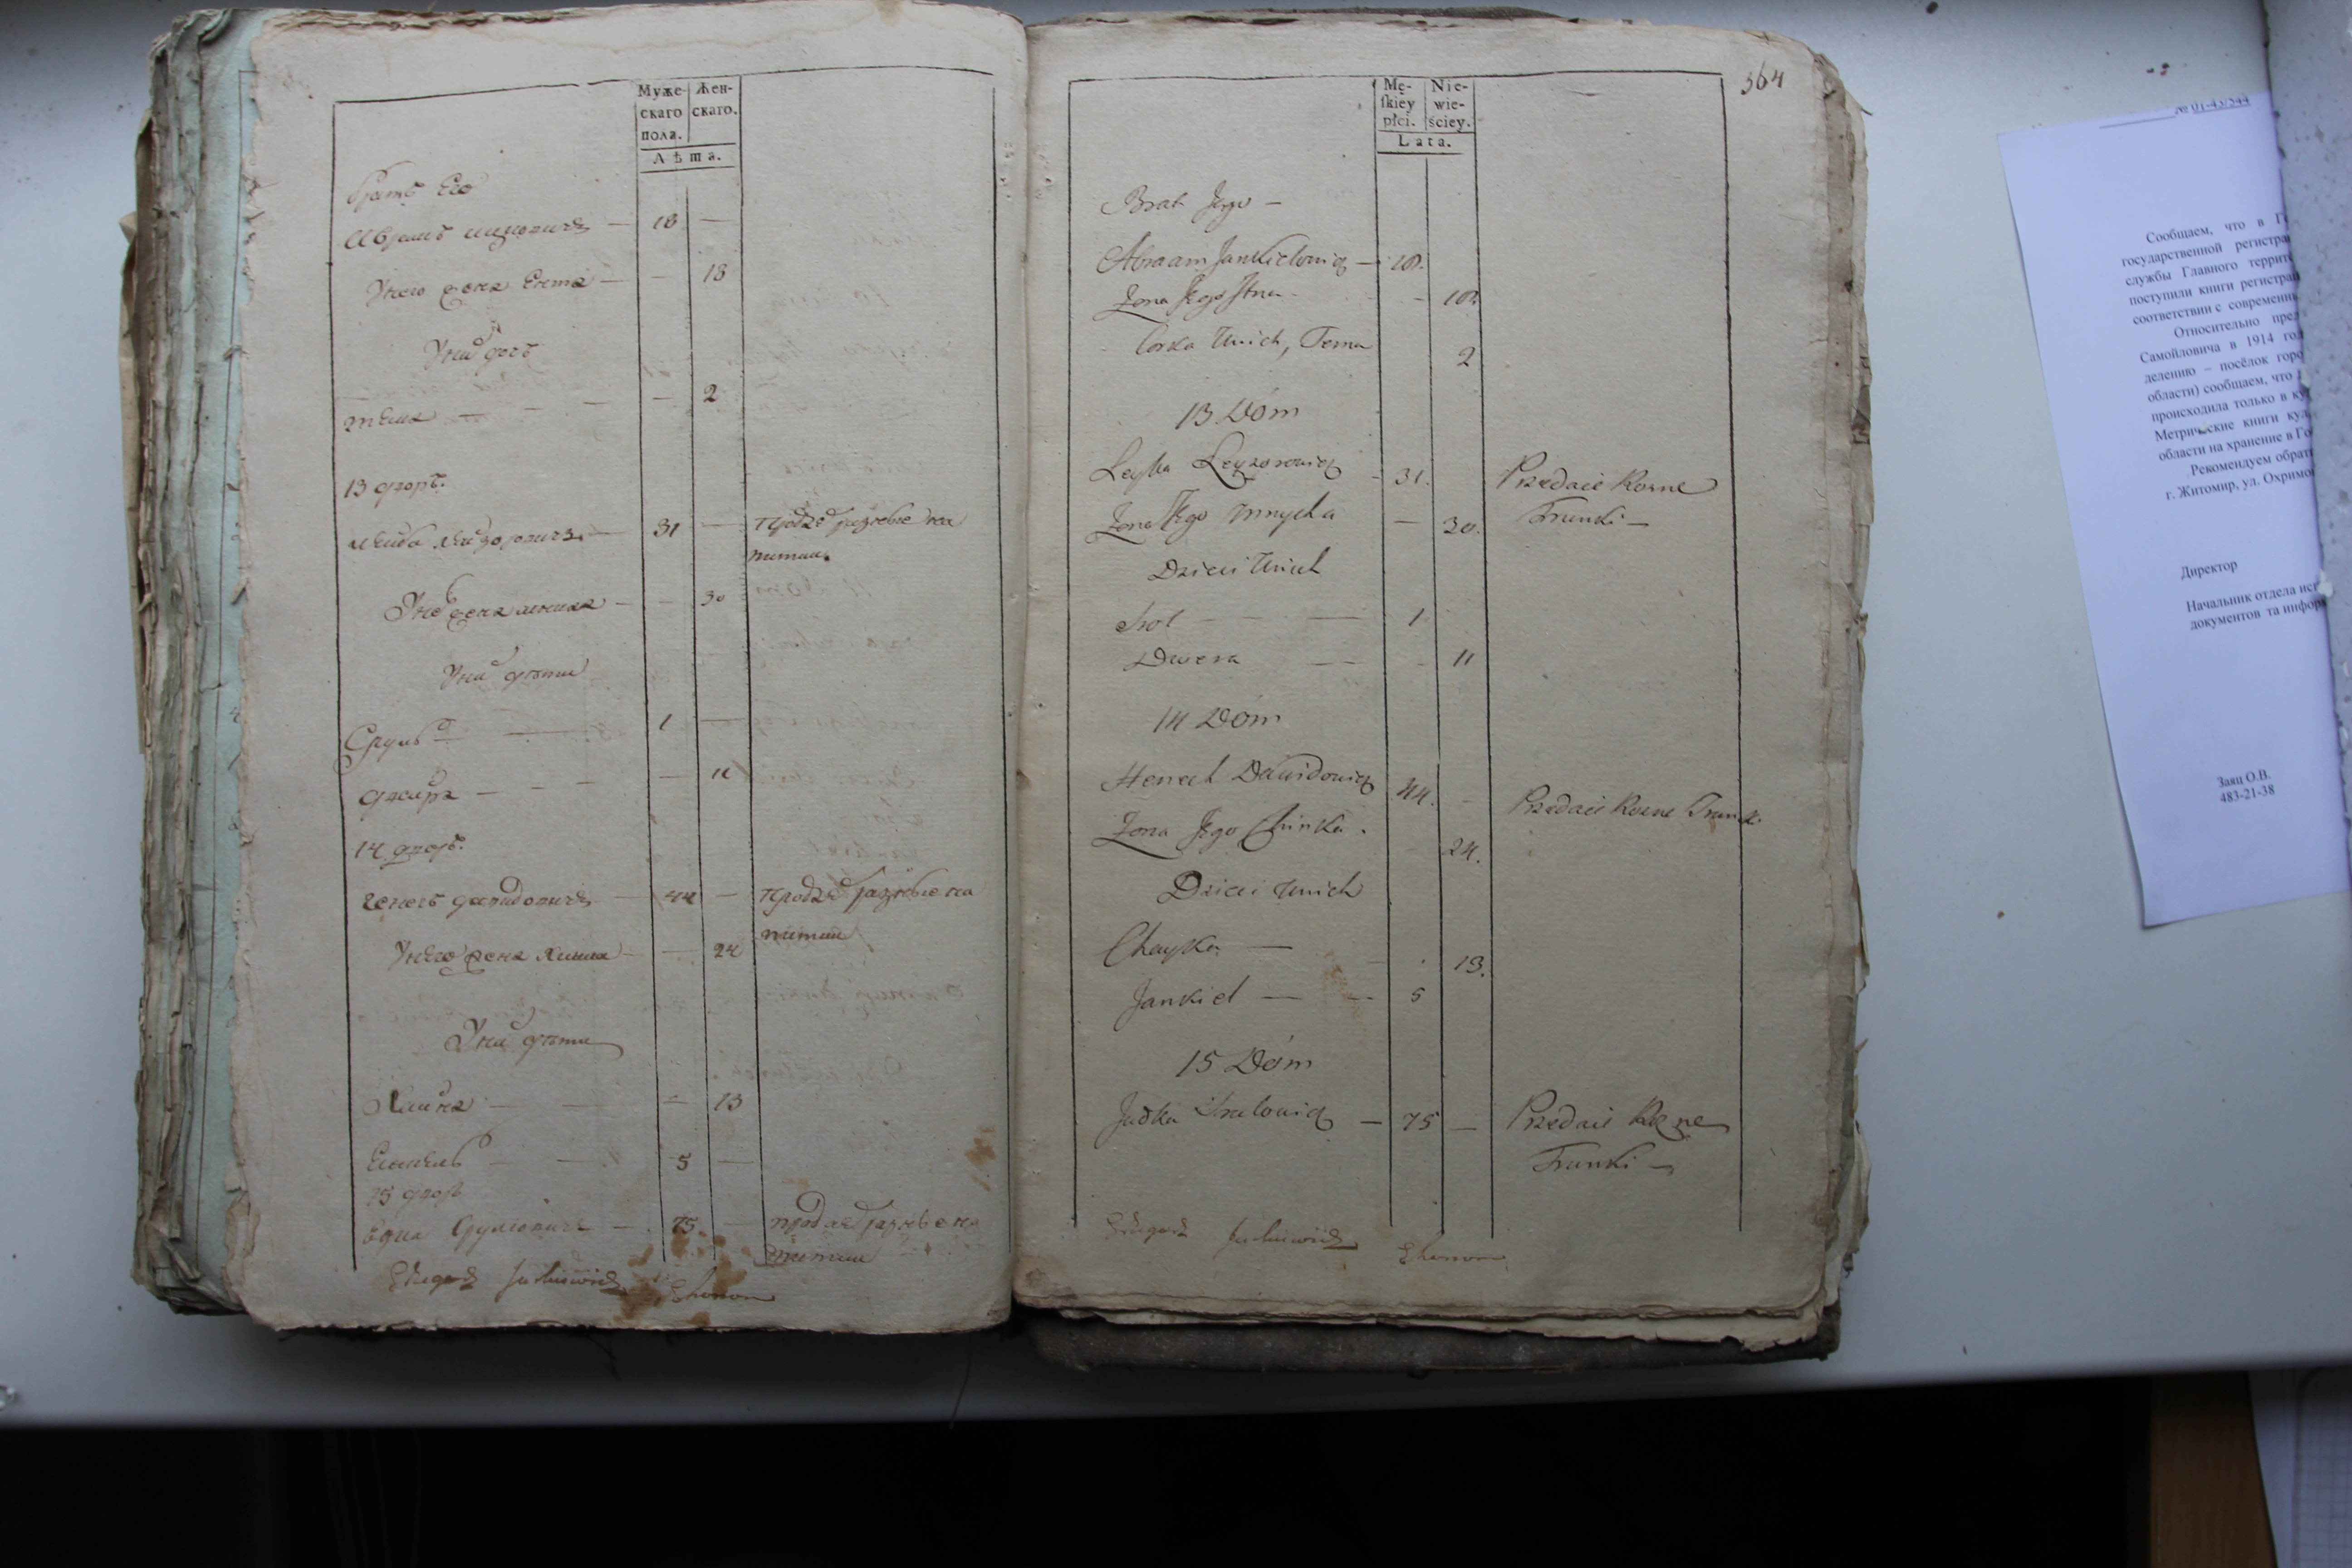 Муже-
скаго
пола.
Жен-
скаго.
Лѣта.
братъ Его
18 —
У него жена Ента — — 18
У них доч
тема — — — — 2
13 дворъ.
Лейба Лейзорович — 31 — продає разные на
питки
жена — — 30
У них дѣти
Сруль — 1 —
двейра — — — — 11
14 дворъ.
генехъ давидовичъ — 44 — продає разные на
питки
У него жена Хинка — — 24
У них дѣти
Хайка — — — 13
Енкель — — 5 —
15 двор
Юдка Срулiович — 75 — продає разные на
питки
Ekonom
364
Mę-
skiey
płci.
Nie-
wie-
ściey.
Lata.
Brat Jego —
Abraam Jankielowicz — 18.
Zona Jego — 18
Corka Unich, Tema 2
13 Dóm
Leyba Leyzorowicz — 31. Przedaie Rozne
Trunki —
Zona Jego — 30.
Dzieci Unich
Srol — — — 1
Dwera — — — 11
14 Dóm
Henoch Dawidowicz 44. — Przedaie Rozne Trunki
Zona Jego Chinka. 24.
Dzieci Unich
Chayka — 13.
Jankiel — — 5
15 Dóm
Judka Srulowicz — 75 — Przedaie Rozne
Trunki —
Ekonom
№ 01-43/544
Сообщаем, что в Г
государственной регистра
службы Главного террит
поступили книги регистра
соответствии с современн
Относительно пре
Самойловича в 1914 го
делению – посёлок горо
области) сообщаем, что
происходила только в
Метрические книги кул
области на хранение в Го
Рекомендуем обрат
г. Житомир, ул. Охримо
Директор
Начальник отдела ис
документов та инфор
Заяц О.В.
483-21-38